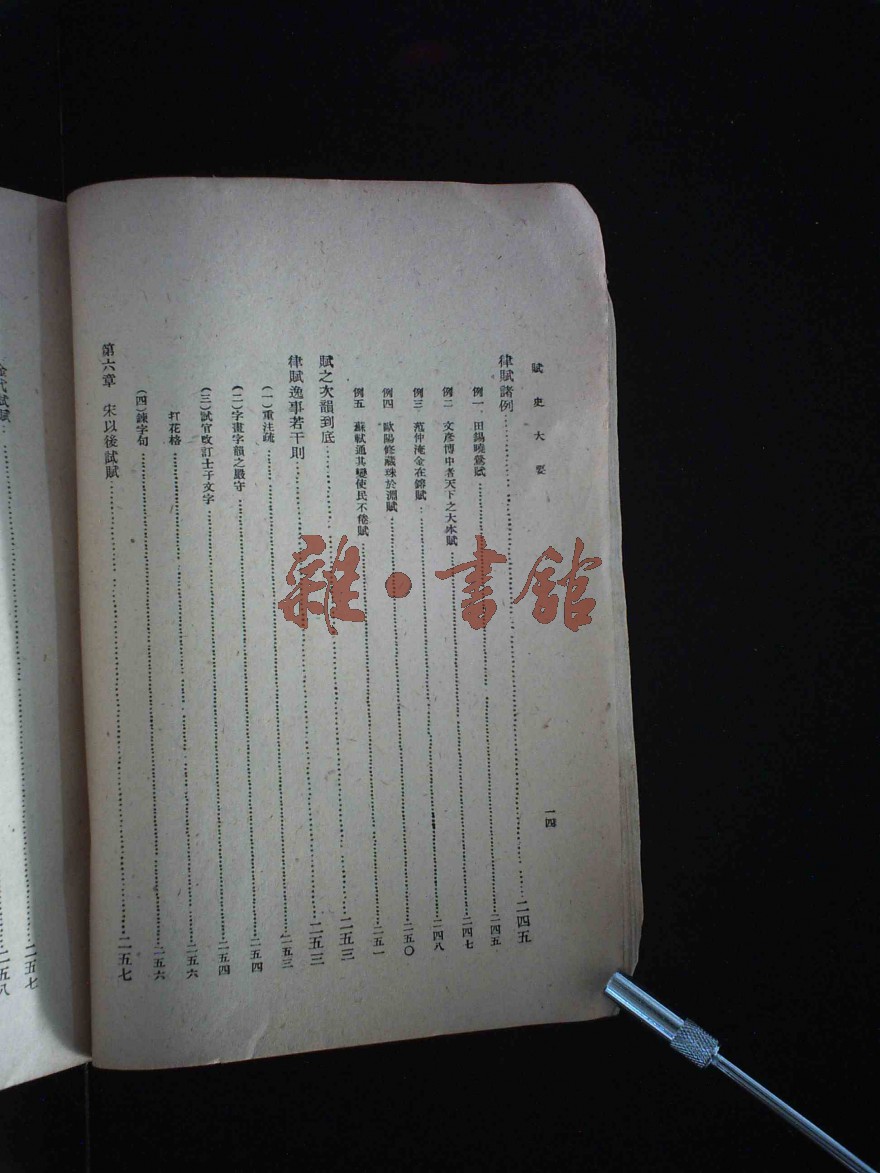 賦史大要
一四
律賦諸例……二四五
例一 田錫曉鶯賦……二四五
例二 文彥博中者天下之大本賦……二四七
例三 范仲淹金在鎔賦……二四八
例四 歐陽修藏珠於淵賦……二五〇
例五 蘇軾通其變使民不倦賦……二五一
賦之次韻到底……二五三
律賦逸事若干則……二五三
(一)重注疏……二五三
(二)字畫字韻之嚴守……二五四
(三)試官改訂士子文字……二五四
打花格……二五六
(四)鍊字句……二五六
第六章 宋以後試賦……二五七
金代試賦……二五七
二五八
雜·書館